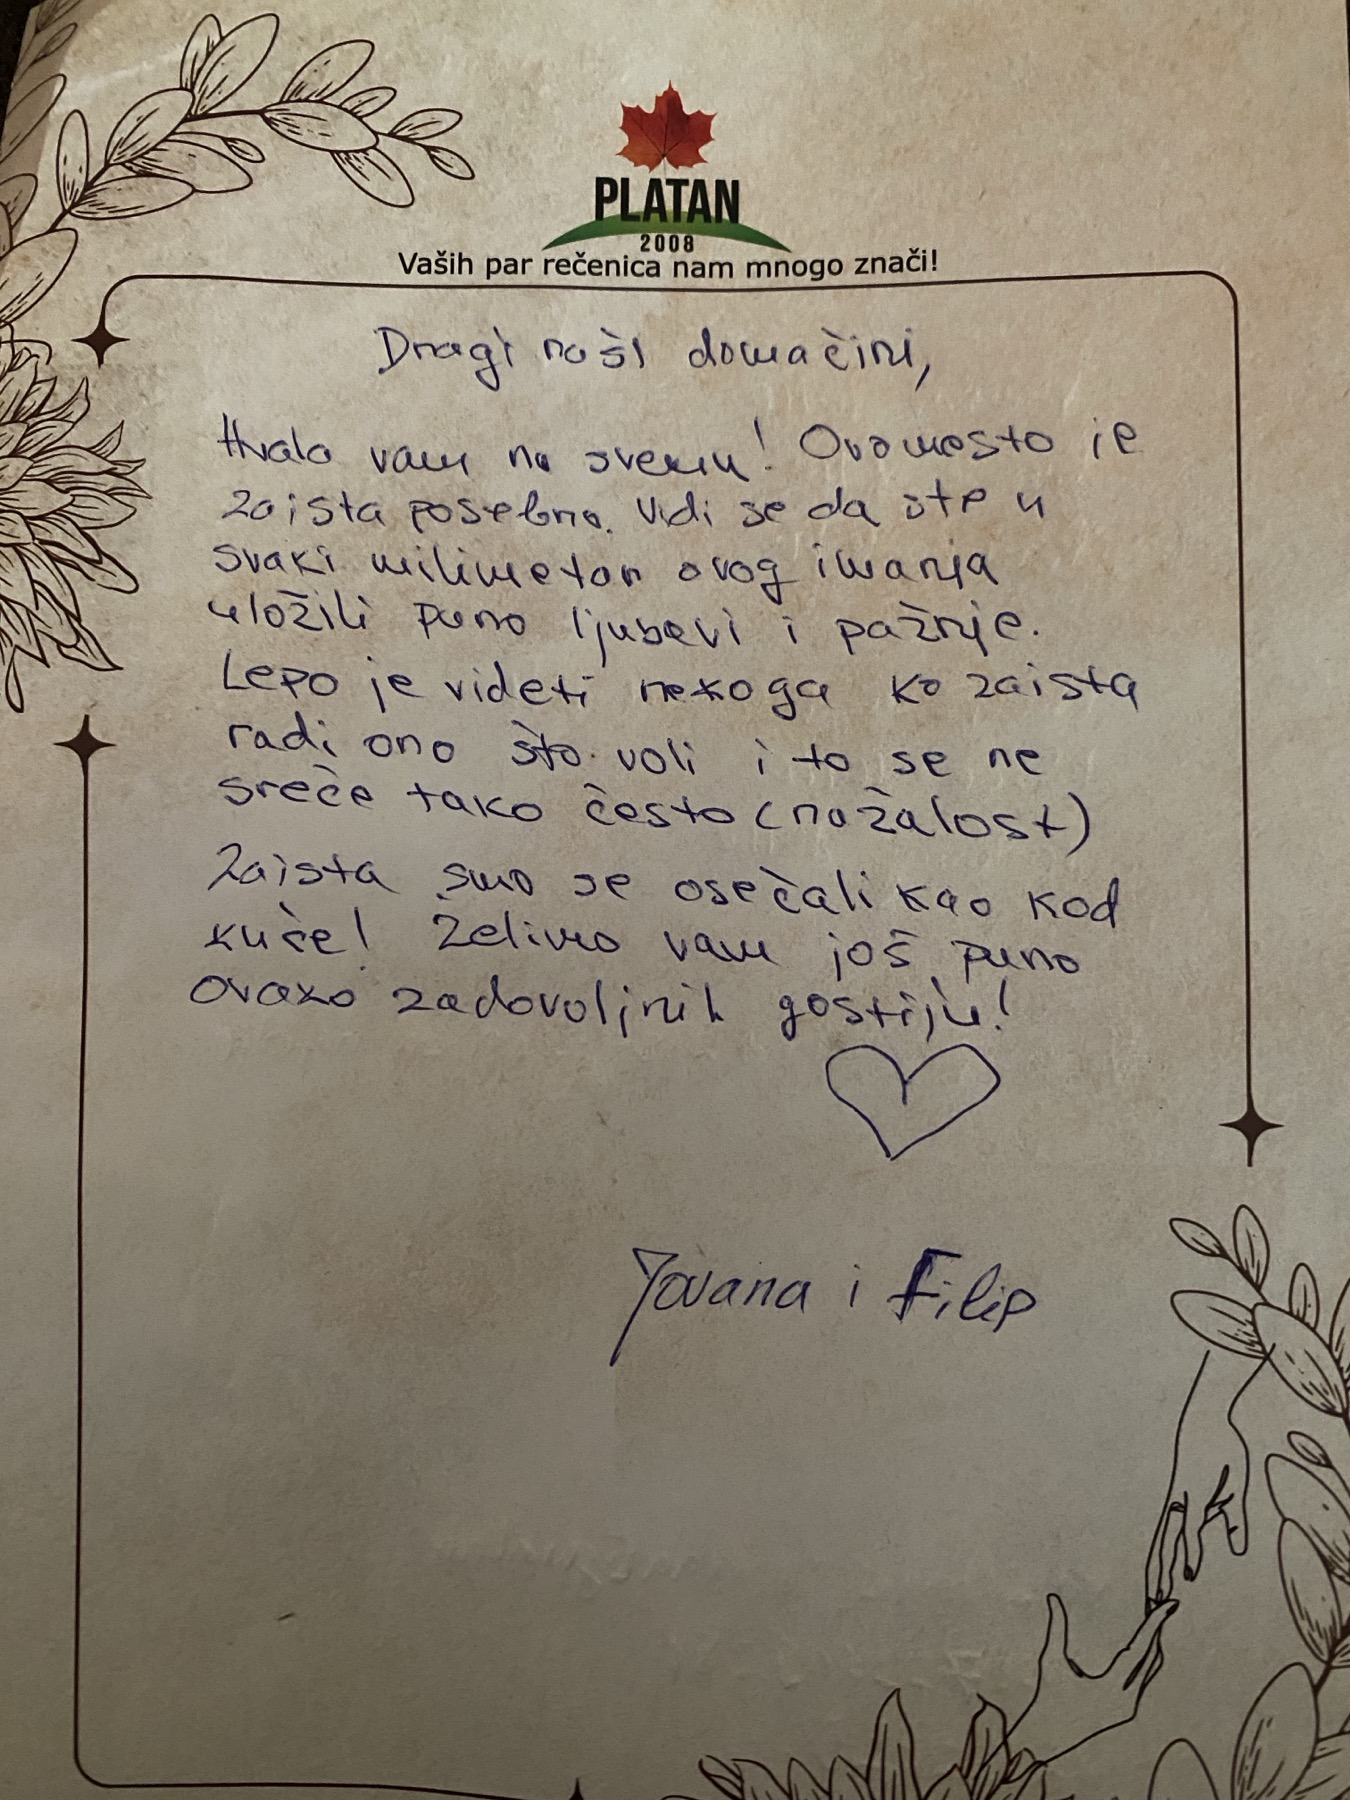 PLATAN
2008
Vaših par rečenica nam mnogo znači!
Dragi naši domaćini,
Hvala vam na svemu! Ovo mesto je
zaista posebno. Vidi se da ste u
svaki milimetar ovog imanja
uložili puno ljubavi i pažnje.
Lepo je videti nekoga ko zaista
radi ono što voli i to se ne
sreće tako često (nažalost)
Zaista smo se osećali kao kod
kuće! Želimo vam još puno
ovako zadovoljnih gostiju!
Jovana i Filip